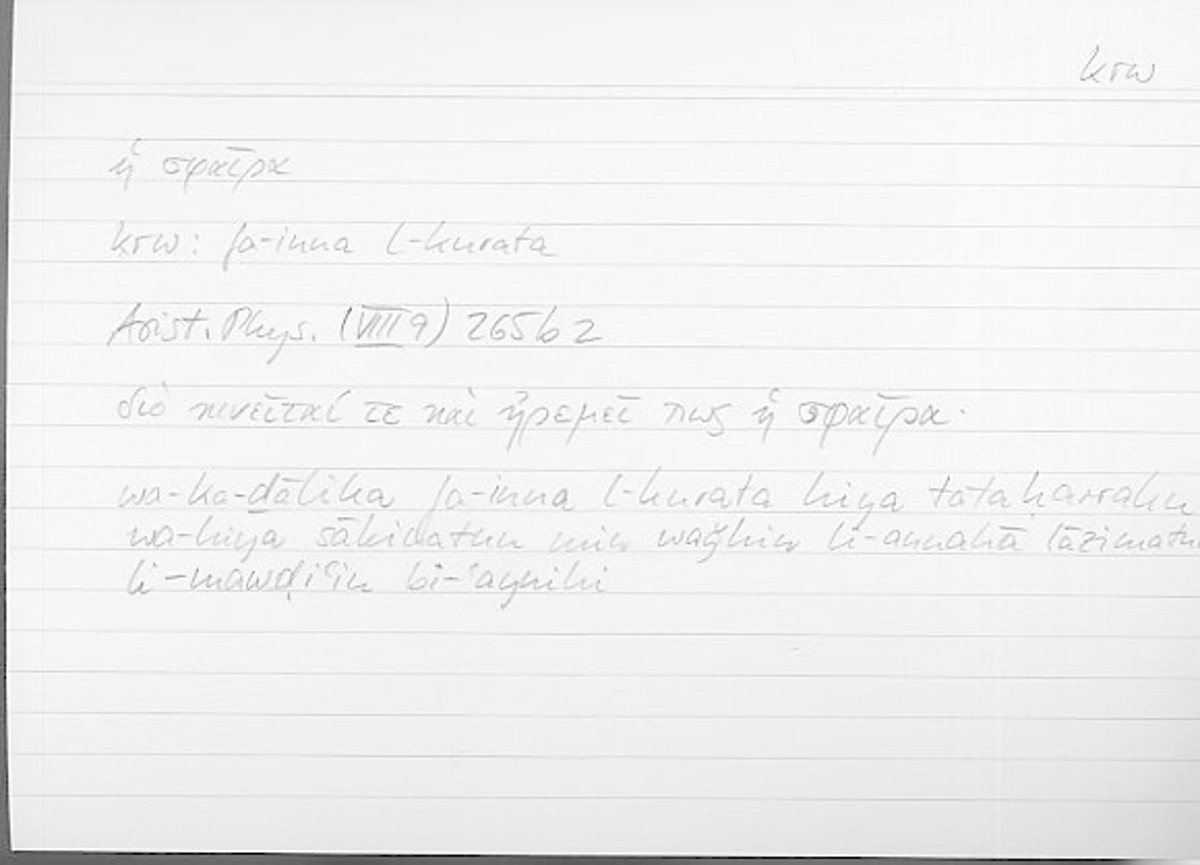 krw
ἡ σφαῖρα
krw: fa-inna l-kurata
Arist. Phys. (VIII 9) 265b2
διὸ κινεῖταί τε καὶ ἠρεμεῖ πως ἡ σφαῖρα·
wa-ka-ḏālika fa-inna l-kurata hiya tataḥarraku
wa-hiya sākinatun min waǧhin li-annahā lāzimatu
li-mawḍiʿin bi-ʿaynihi